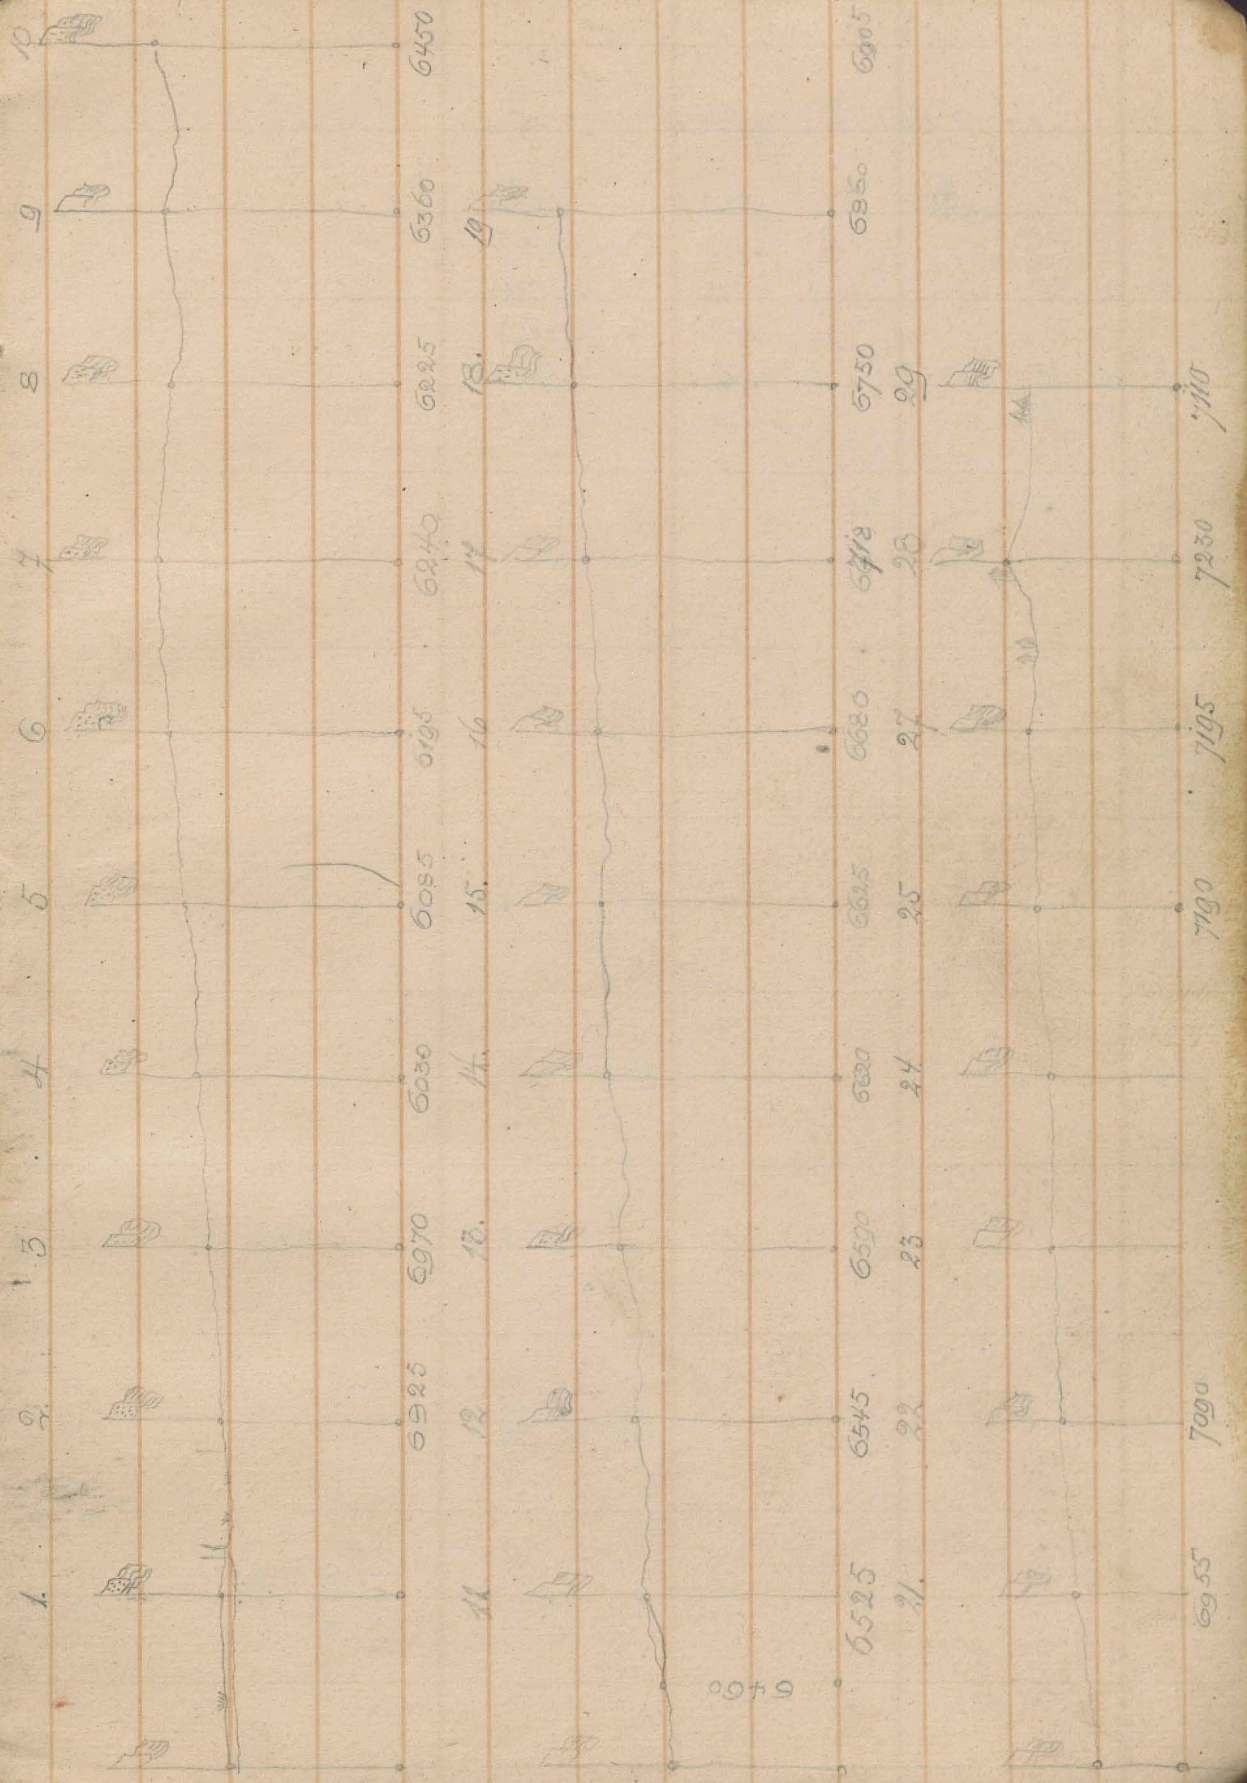 1. 2. 3 4 5 6 7 8 9 10
6925 6970 6030 6085 6195 6240 6225 6360 6450
11 12 13. 14. 15. 16 17 18. 19
6460
6525 6545 6590 6620 6625 6680 6718 6750 6860 6905
21. 22 23 24 25 27 28 29
6955 7090 7190 7195 7230 7110